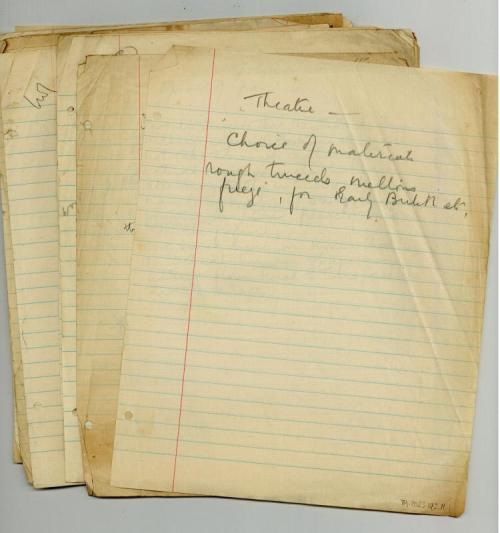 Theatre —
Choice of materials
rough tweeds mellins
for Early British etc,